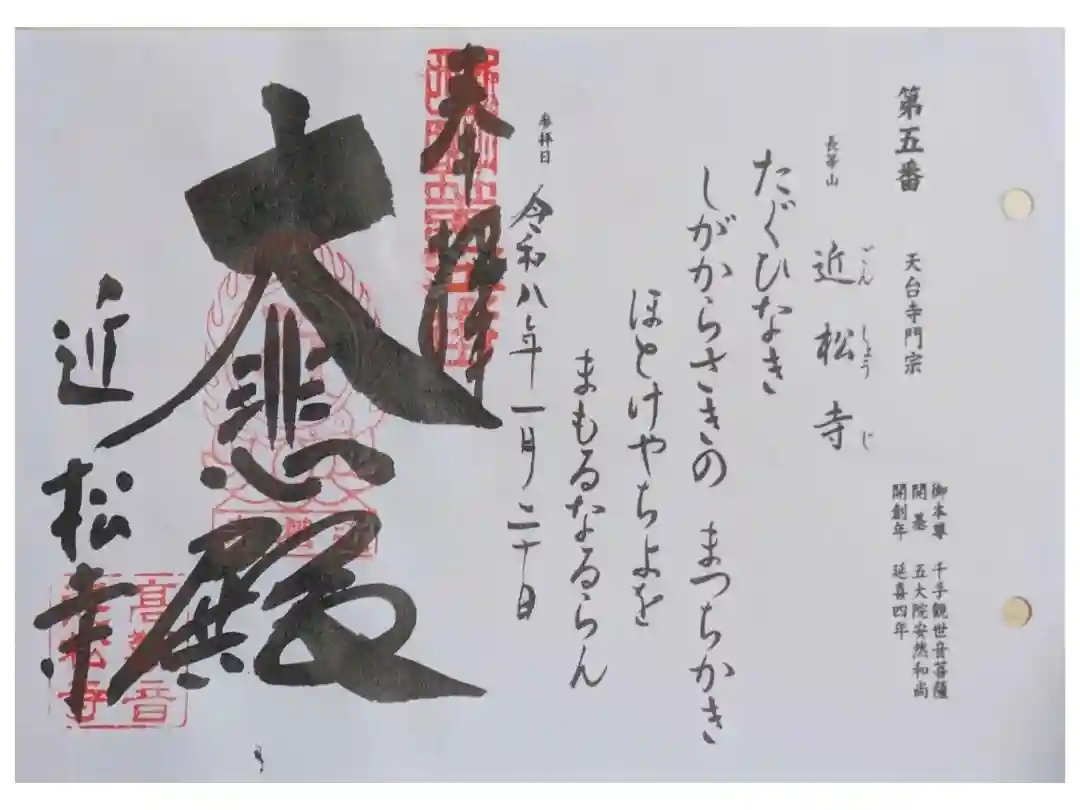 第五番 天台寺門宗
御本尊 千手観世音菩薩
開基 五大院安然和尚
開創年 延喜四年
長等山 近松寺
ごんしょうじ
たぐひなき
しがからさきの まつちかき
ほとけやちよを
まもるなるらん
参拝日 令和八年一月二十日
奉拝
大悲殿
近松寺